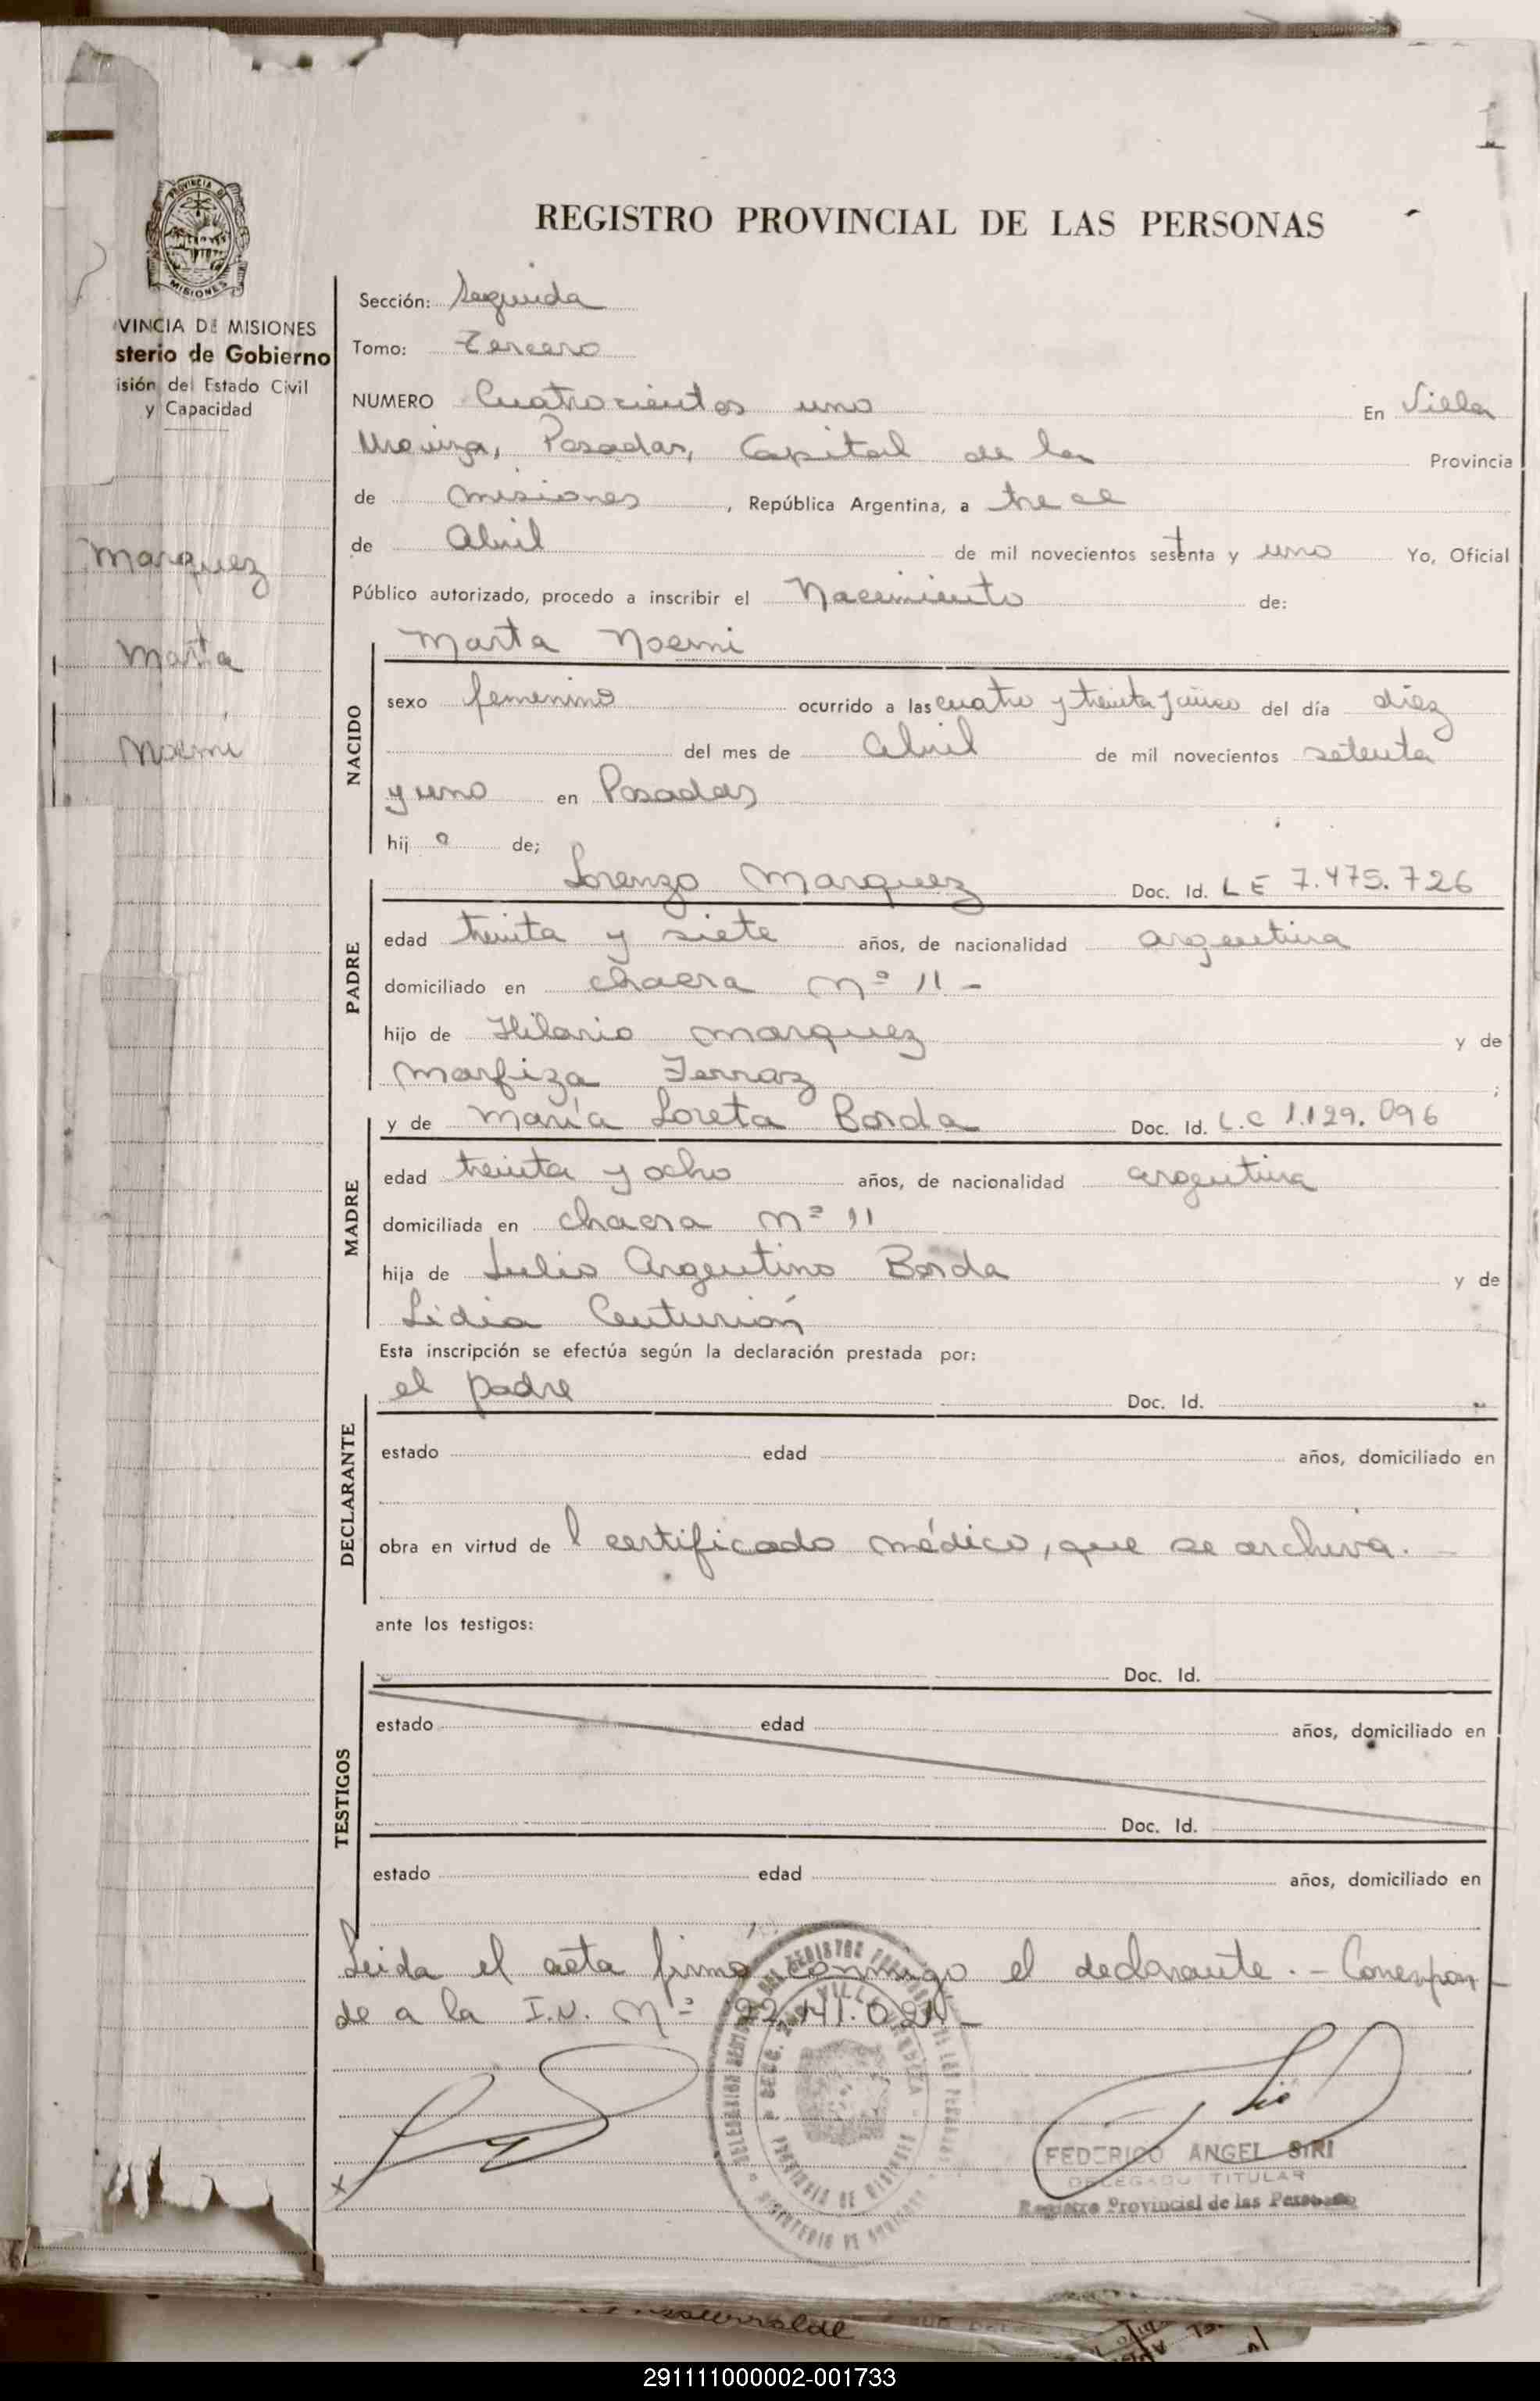 1
REGISTRO PROVINCIAL DE LAS PERSONAS
MISIONES
VINCIA DE MISIONES
sterio de Gobierno
isión del Estado Civil
y Capacidad
Marquez
Marta
Noemi
Sección: Segunda
Tomo: Tercero
NUMERO Cuatrocientos uno En Villa
Urquiza, Posadas, Capital de la Provincia
de Misiones, República Argentina, a trece
de Abril de mil novecientos setenta y uno Yo, Oficial
Público autorizado, procedo a inscribir el Nacimiento de:
Marta Noemi
NACIDO
sexo femenino ocurrido a las cuatro y treinta y cinco del día diez
del mes de abril de mil novecientos setenta
y uno en Posadas
hij a de;
PADRE
Lorenzo Marquez Doc. Id. L E 7.475.726
edad treinta y siete años, de nacionalidad argentina
domiciliado en chacra Nº 11 -
hijo de Hilario Marquez y de
Marfiza Ferraz ;
MADRE
y de María Loreta Borda Doc. Id. L.C 1.129.096
edad treinta y ocho años, de nacionalidad argentina
domiciliada en chacra Nº 11
hija de Julio Argentino Borda y de
Lidia Centurión
Esta inscripción se efectúa según la declaración prestada por:
DECLARANTE
el padre Doc. Id.
estado edad años, domiciliado en
obra en virtud de l certificado médico, que se archiva. -
ante los testigos:
TESTIGOS
Doc. Id.
estado edad años, domiciliado en
Doc. Id.
estado edad años, domiciliado en
Leida el acta firma conmigo el declarante. - Correspon-
de a la I.N. Nº
FEDERICO ANGEL SIRI
DELEGADO TITULAR
Registro Provincial de las Personas
291111000002-001733